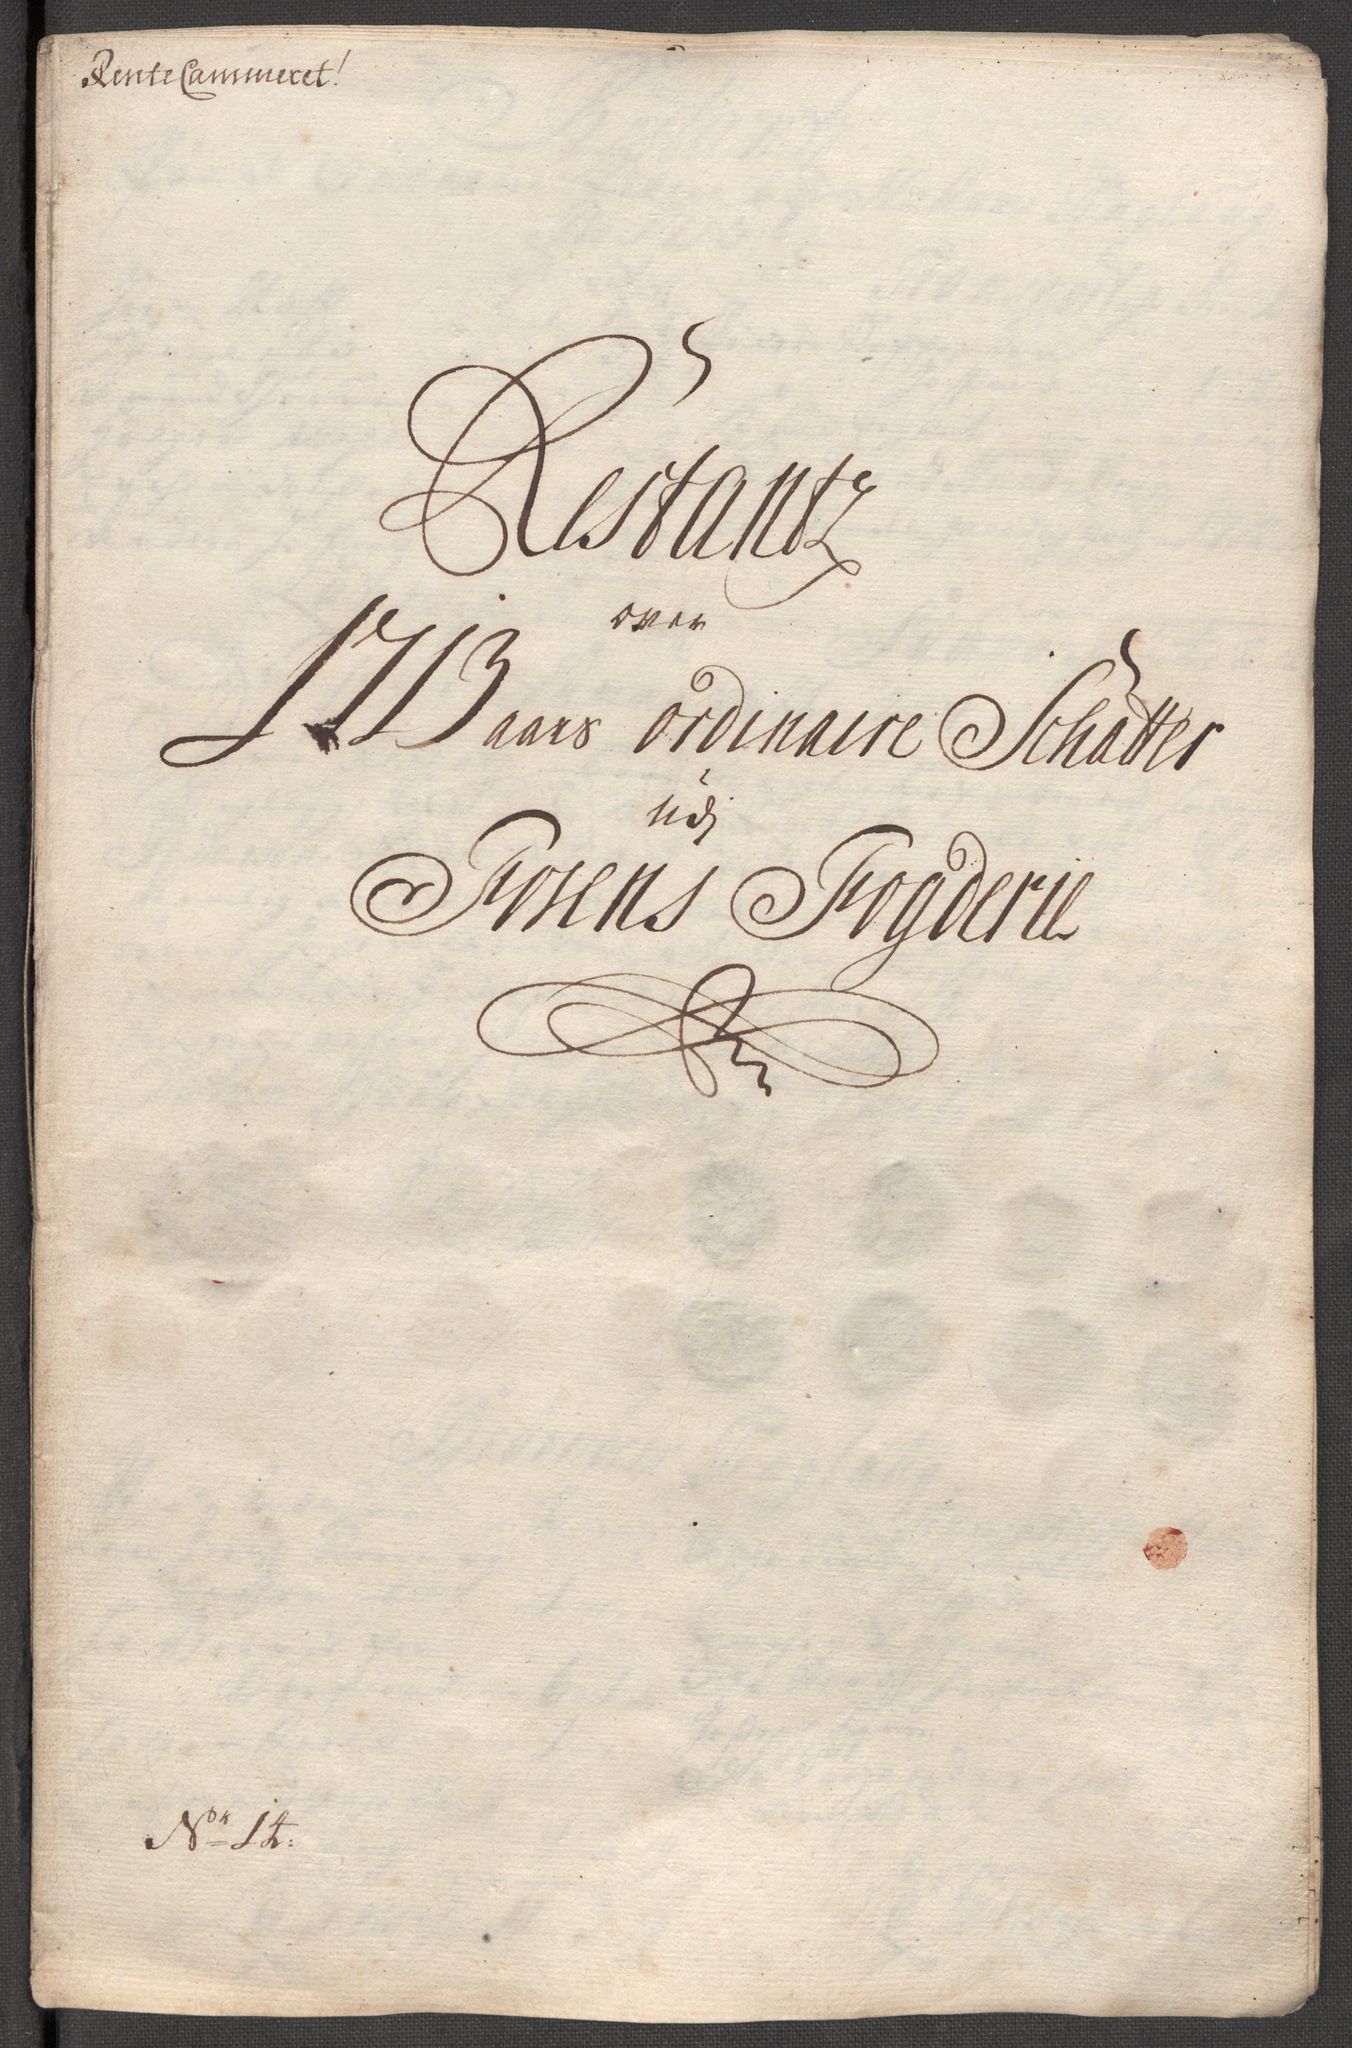 RenteCammeret!
Restantz
over
1713 aars ordinaire Schatter
udj
Fosens Fogderie
No 14: